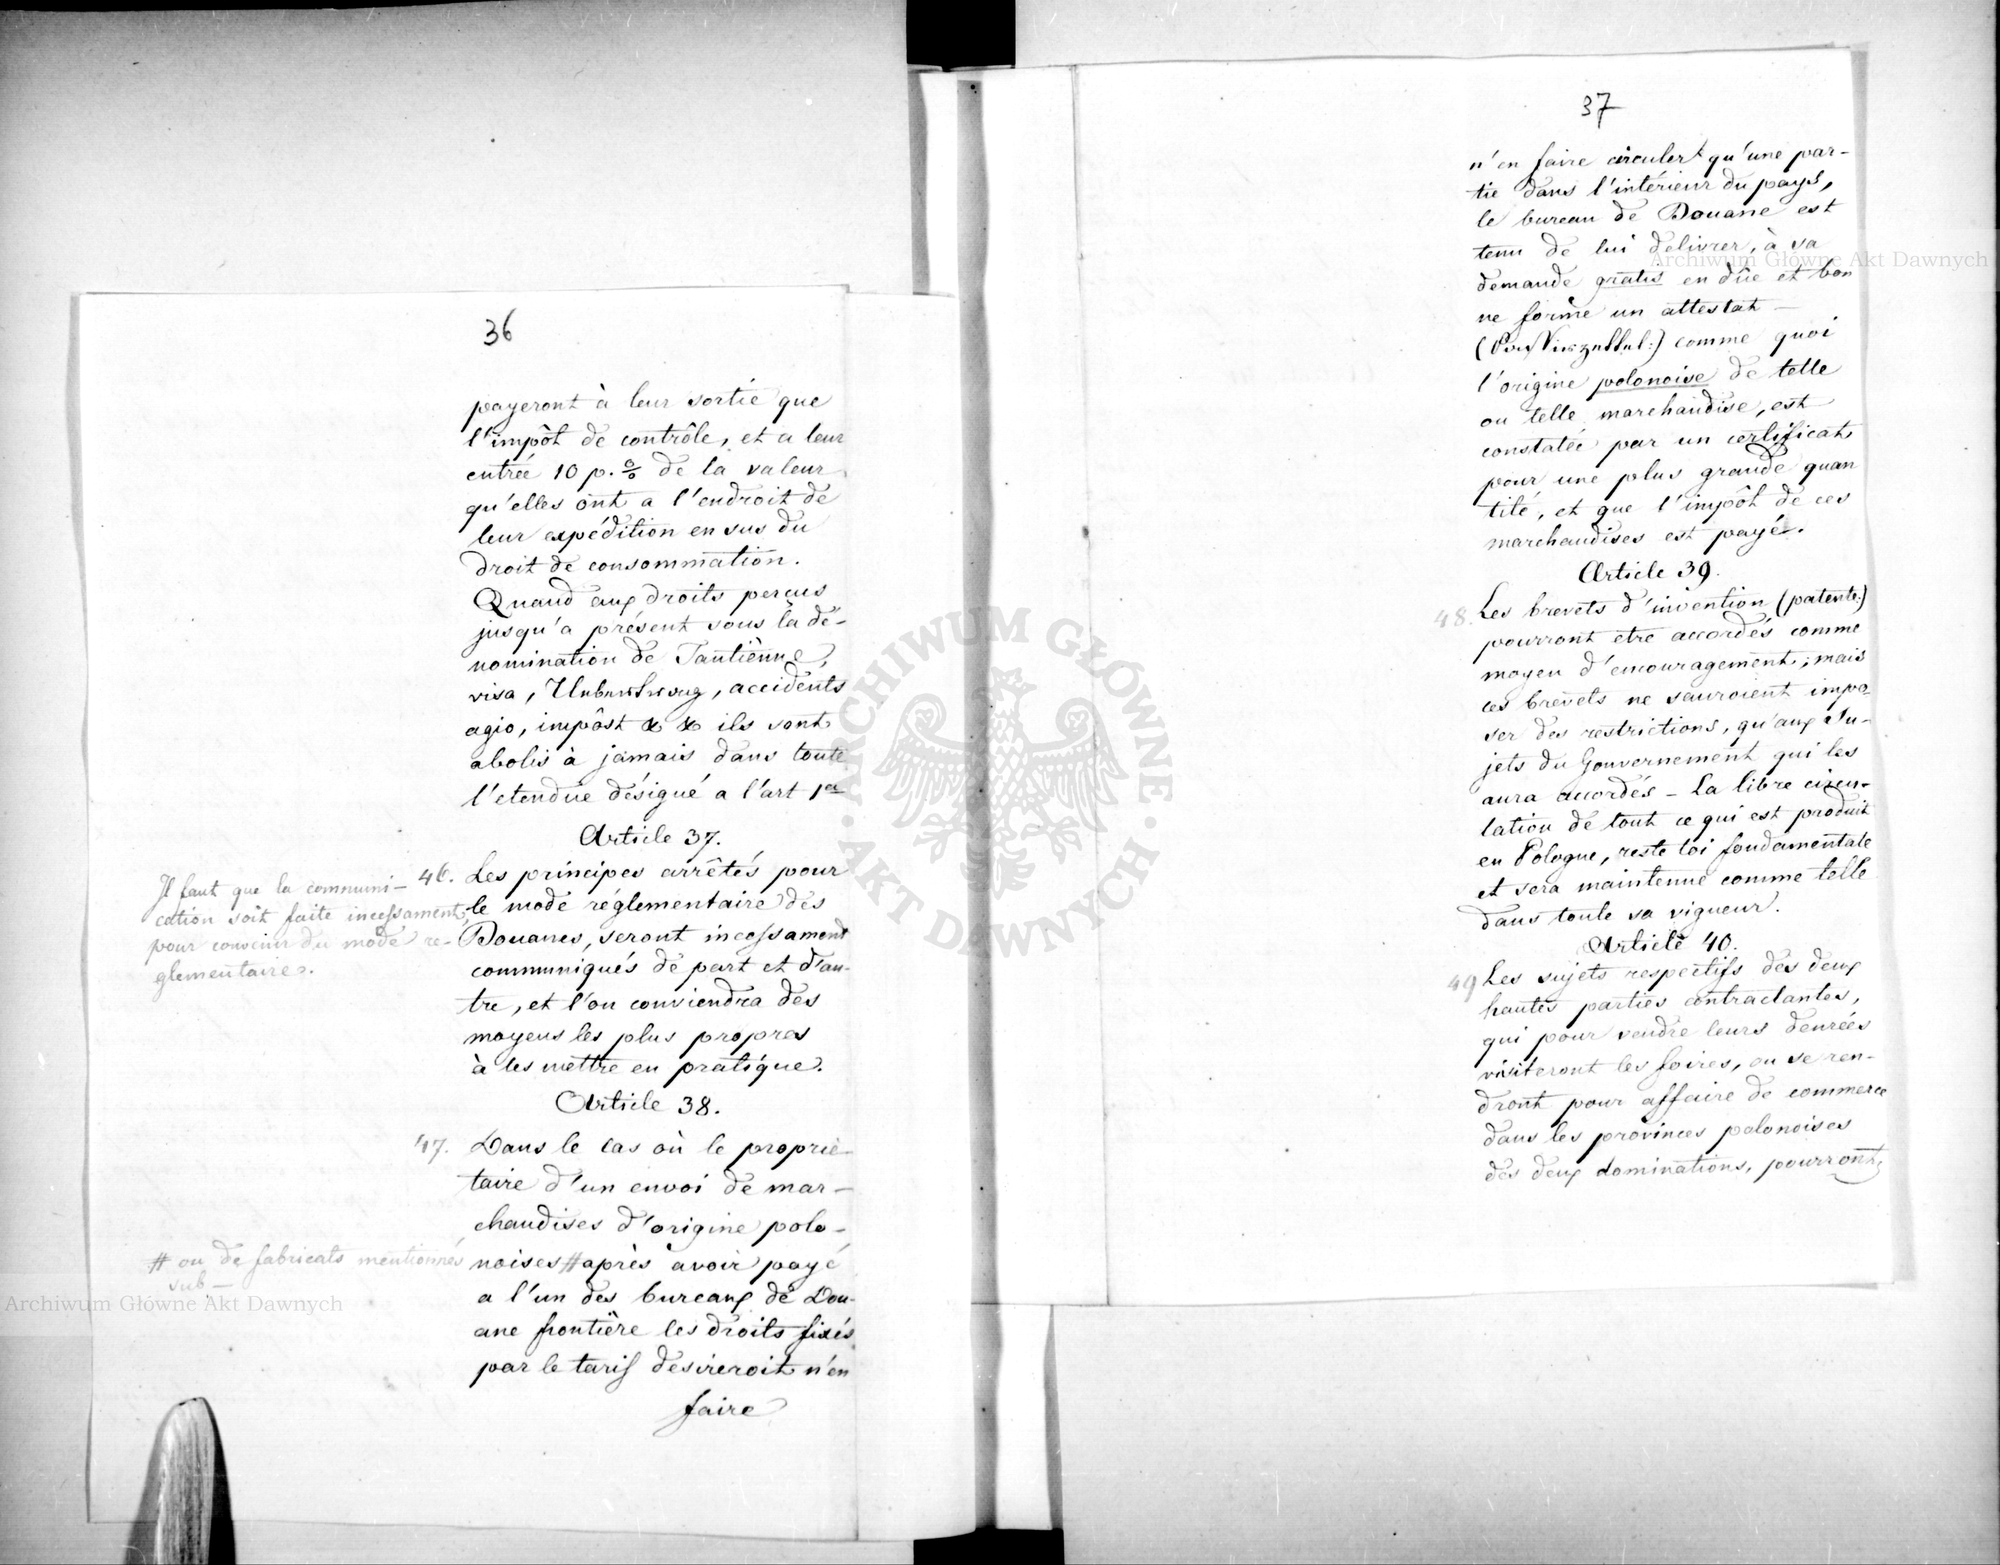 36
payeront à leur sortie que
l'impôt de contrôle, et a leur
entrée 10 p. % de la valeur
qu'elles ont a l'endroit de
leur expédition en sus du
droit de consommation.
Quand aux droits perçus
jusqu'a présent sous la dé-
nomination de Tantième,
visa, accidents
agio, impôst & & ils sont
abolis à jamais dans toute
l'etendue désigué a l'art 1er
Article 37.
46. Les principes arrêtés pour
le mode réglementaire des
Douanes, seront incessament
communiqués de part et d'au-
tre, et l'on conviendra des
moyens les plus propres
à les mettre en pratique.
Il faut que la communi-
cation soit faite incessament,
pour convenir du mode re-
glementaire.
Article 38.
47. Dans le cas où le proprié-
taire d'un envoi de mar-
chandises d'origine polo-
noises # après avoir payé
a l'un des bureaux de Dou-
ane frontière les droits fixés
par le tarif desireroit n'en
faire
# ou de fabricats mentionnés
sub-
37
n'en faire circuler qu'une par-
tie dans l'intérieur du pays,
le bureau de Douane est
tenu de lui delivrer, à sa
demande gratis en dûe et bon
ne forme un attestat -
comme quoi
l'origine polonoise de telle
ou telle marchandise, est
constatée par un certificat
pour une plus grande quan
tité, et que l'impôt de ces
marchandises est payé.
Article 39.
48. Les brevets d'invention (patente:)
pourront etre accordés comme
moyen d'encouragement; mais
ces brevets ne sauroient impo-
ser des restrictions, qu'aux Su-
jets du Gouvernement qui les
aura accordés - La libre circu-
lation de tout ce qui est produit
en Pologne, reste loi fondamentale
et sera maintenue comme telle
dans toute sa vigueur.
Article 40.
49 Les sujets respectifs des deux
hautes parties contractantes,
qui pour vendre leurs denrées
visiteront les foires, ou se ren-
dront pour affaire de commerce
dans les provinces polonoises
des deux dominations, pourront
Archiwum Główne Akt Dawnych
Archiwum Główne Akt Dawnych
ARCHIWUM GŁÓWNE
AKT DAWNYCH